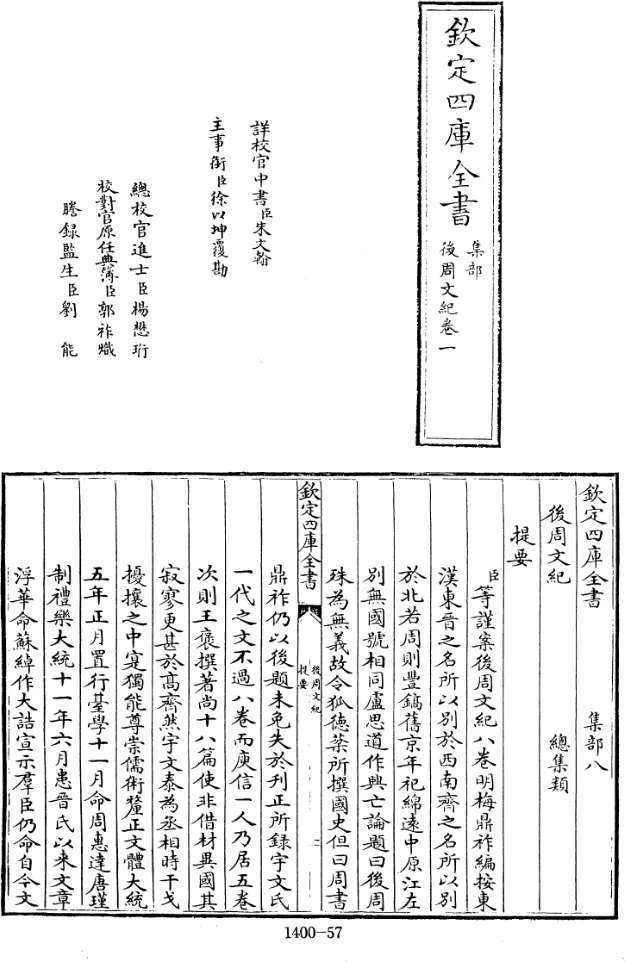 欽定四庫全書
集部
後周文紀卷一
詳校官中書臣朱文翰
主事銜臣徐以坤覆勘
總校官進士臣楊懋珩
校對官原任典簿臣郭祚熾
謄錄監生臣劉 能
欽定四庫全書 集部八
後周文紀 總集類
提要
臣等謹案後周文紀八卷明梅鼎祚編按東
漢東晉之名所以別於西南齊之名所以別
於北若周則豐鎬舊京年祀綿遠中原江左
別無國號相同盧思道作興亡論題曰後周
殊為無義故令狐德棻所撰國史但曰周書
欽定四庫全書
後周文紀
提要
二
鼎祚仍以後題未免失於刊正所錄宇文氏
一代之文不過八卷而庾信一人乃居五卷
次則王褒撰著尚十八篇使非借材異國其
寂寥更甚於高齊然宇文泰為丞相時干戈
擾攘之中寔獨能尊崇儒術釐正文體大統
五年正月置行臺學十一月命周惠達唐瑾
制禮樂大統十一年六月患晉氏以來文章
浮華命蘇綽作大誥宣示羣臣仍命自今文
1400-57